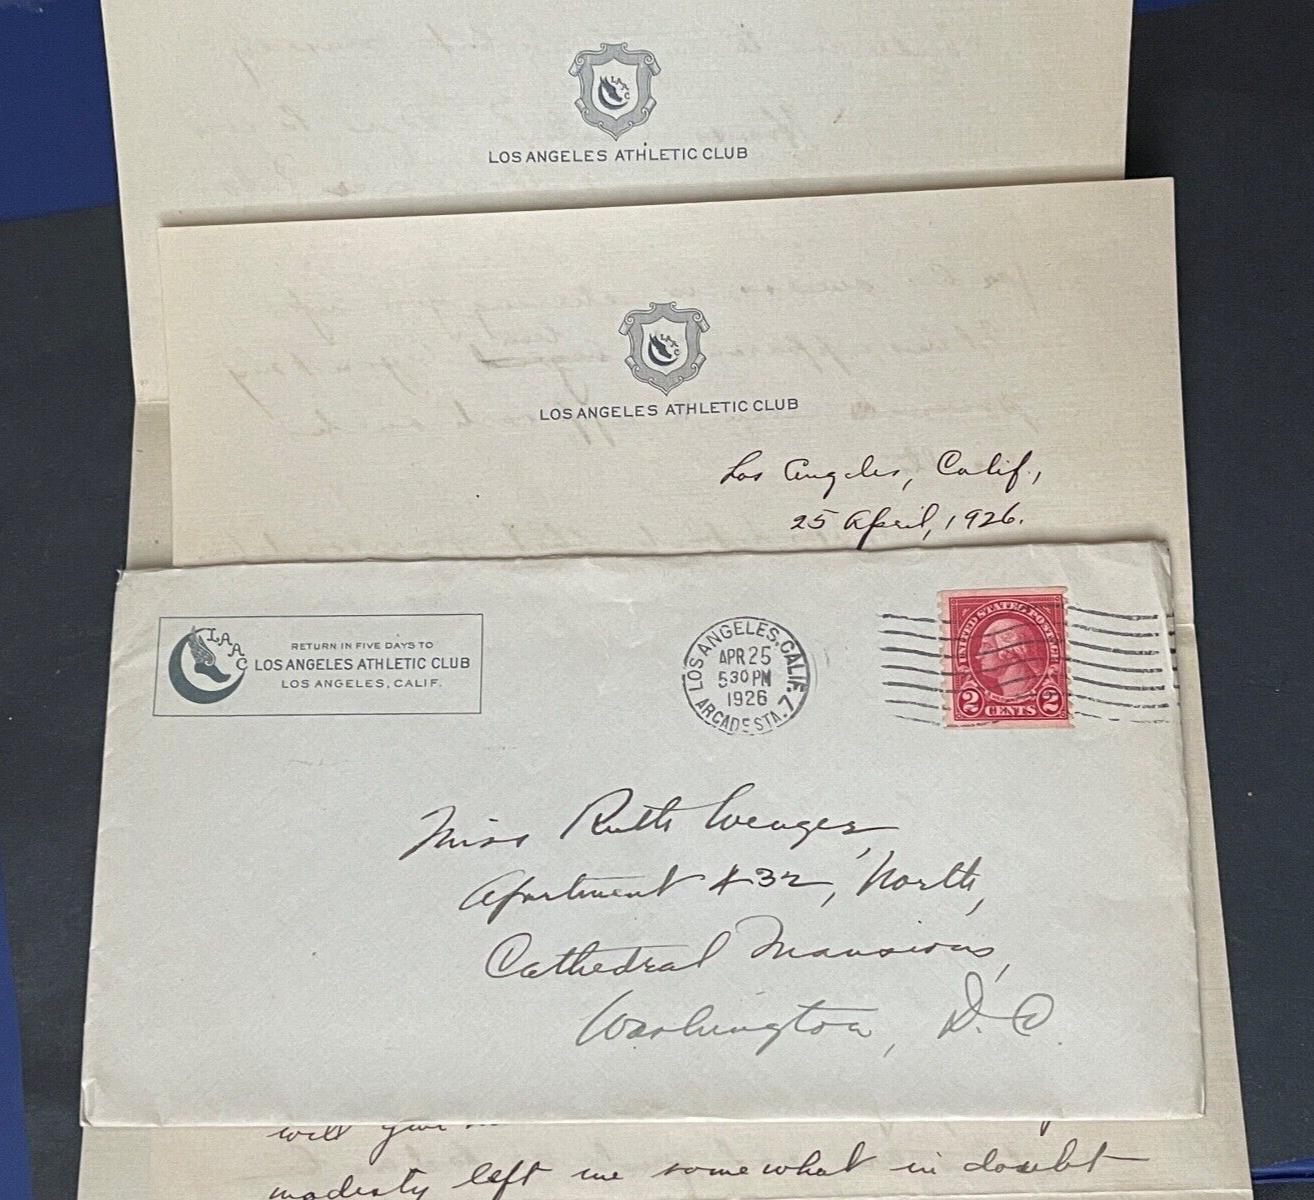 LAAC
LOS ANGELES ATHLETIC CLUB
LAAC
LOS ANGELES ATHLETIC CLUB
Los Angeles, Calif.,
25 April, 1926.
LAAC
RETURN IN FIVE DAYS TO
LOS ANGELES ATHLETIC CLUB
LOS ANGELES, CALIF.
LOS ANGELES, CALIF.
APR 25
530 PM
1926
ARCADE STA. 7.
UNITED STATES POSTAGE
2 CENTS 2
Miss Ruth Wenger,
Apartment 432, North,
Cathedral Mansions,
Washington, D.C.
will
modesty left me somewhat in doubt